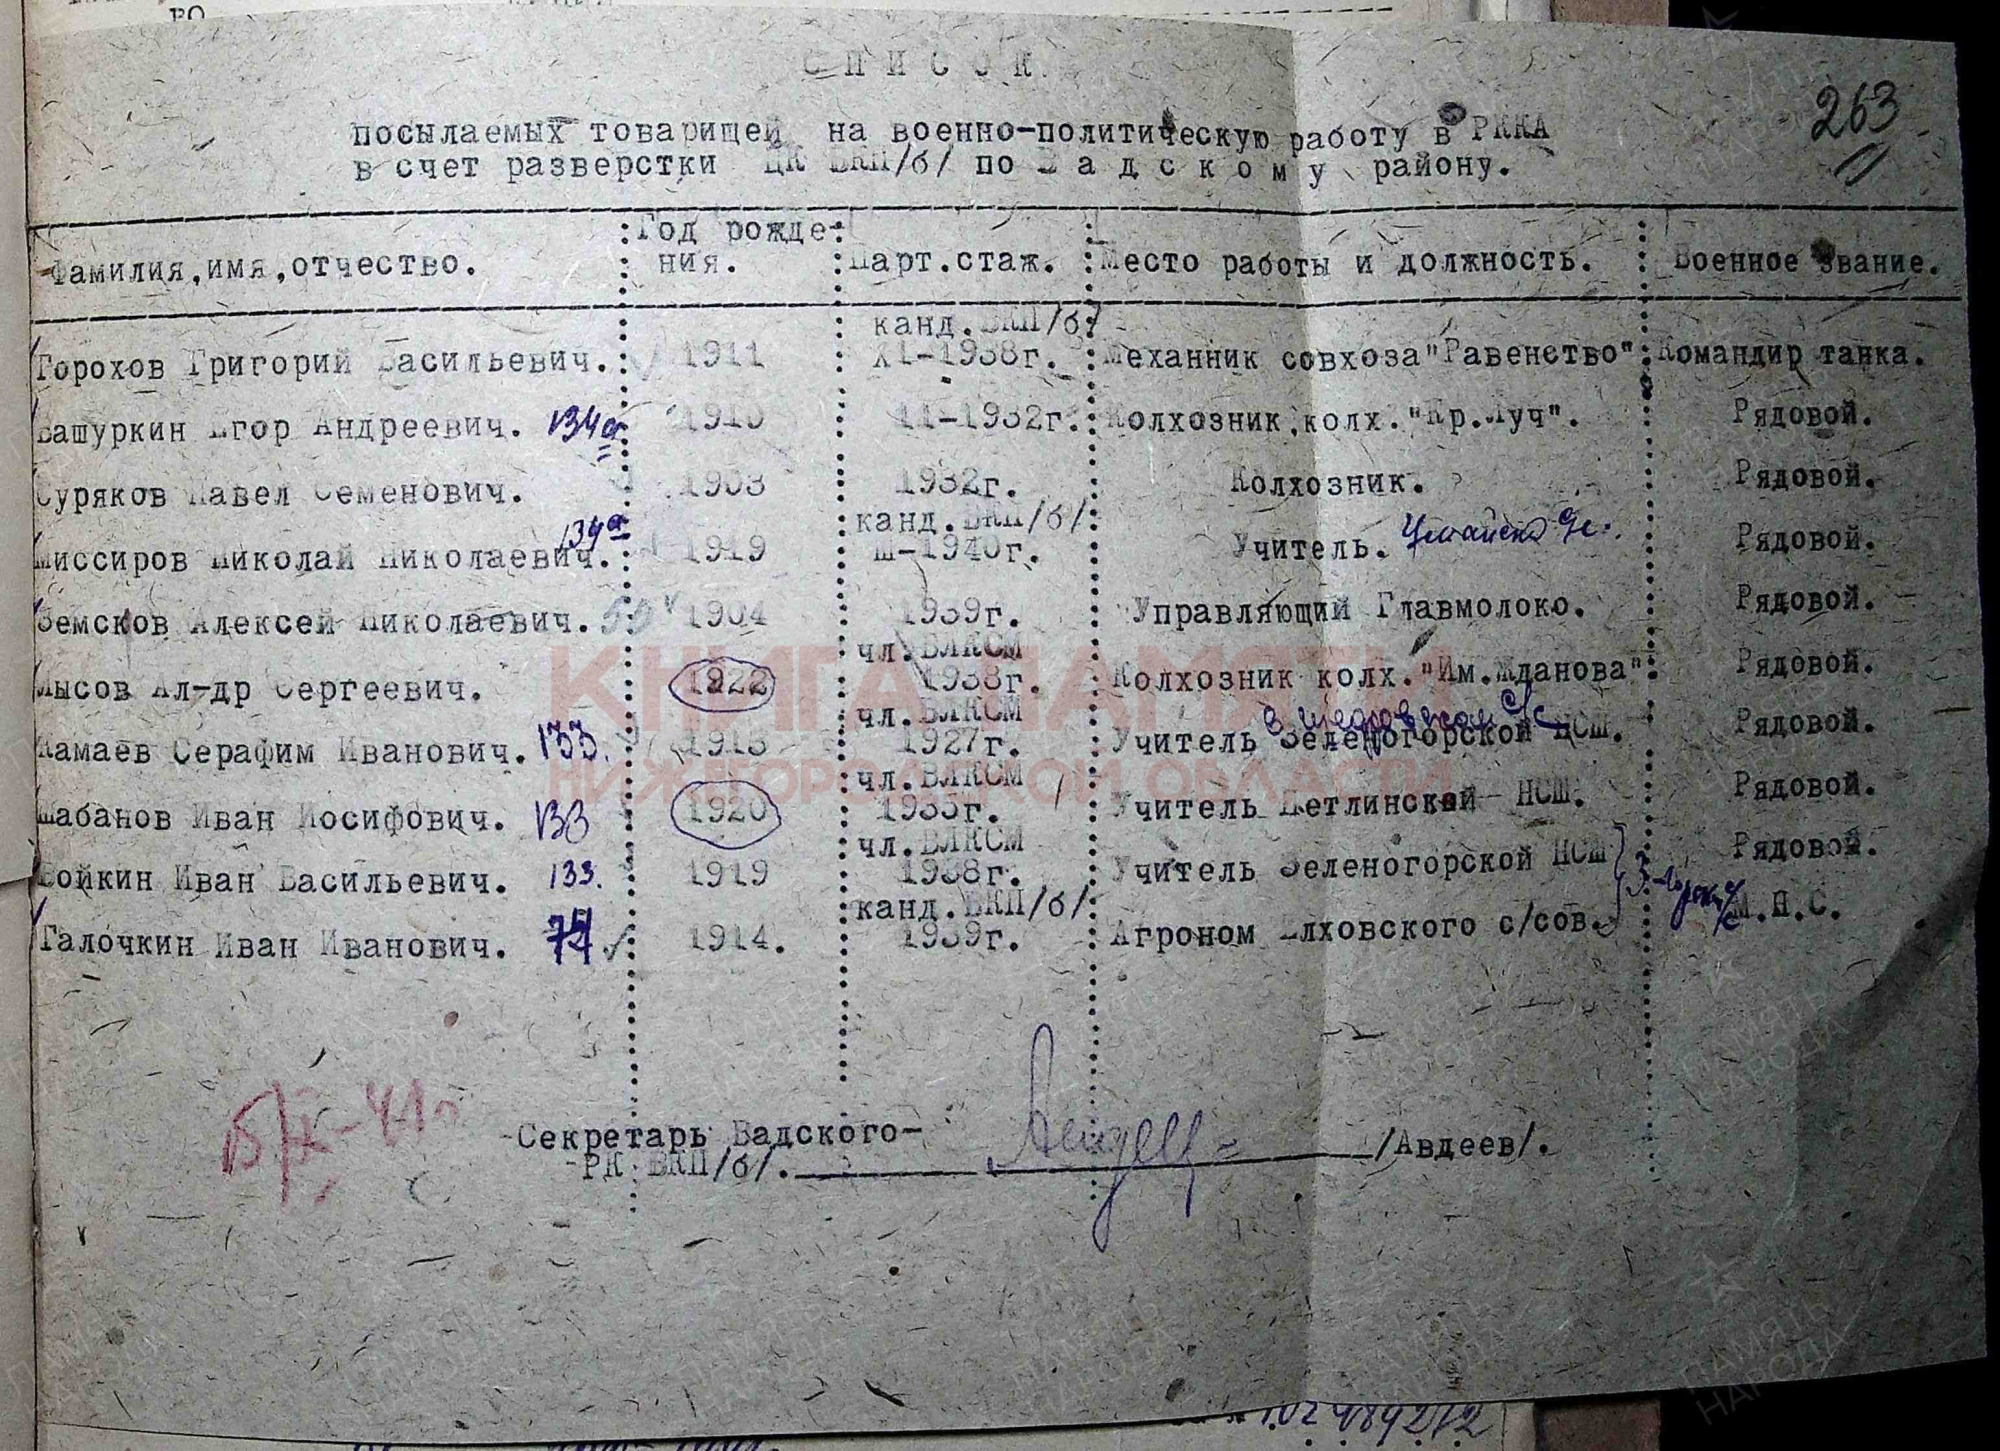 во
СПИСОК
263
посылаемых товарищей на военно-политическую работу в РККА
в счет разверстки ЦК ВКП/б/ по Вадскому району.
Фамилия,имя,отчество. Год рожде-ния. Парт.стаж. Место работы и должность. Военное звание.
Горохов Григорий Васильевич. 1911 канд.ВКП/б/ XI-1938г. Механник совхоза"Равенство". Командир танка.
Башуркин Егор Андреевич. 134а 1910 11-1932г. Колхозник,колх."Кр.Луч". Рядовой.
Суряков Павел Семенович. 1903 1932г. Колхозник. Рядовой.
Миссиров Николай Николаевич. 134а 1919 канд.ВКП/б/ Ш-1940г. Учитель. Рядовой.
Земсков Алексей Николаевич. 1904 1939г. Управляющий Главмолоко. Рядовой.
Лысов Ал-др Сергеевич. 1922 чл.ВЛКСМ 1938г. Колхозник колх."Им.Жданова" Рядовой.
Камаев Серафим Иванович. 133. 1913 чл.ВЛКСМ 1927г. Учитель Зеленогорской НСШ. Рядовой.
Шабанов Иван Иосифович. 133 1920 чл.ВЛКСМ 1935г. Учитель Петлинской НСШ. Рядовой.
Бойкин Иван Васильевич. 133. 1919 чл.ВЛКСМ 1938г. Учитель Зеленогорской НСШ Рядовой.
Галочкин Иван Иванович. 74 1914. канд.ВКП/б/ 1939г. Агроном Елховского с/сов. М.Н.С.
КНИГА ПАМЯТИ
НИЖЕГОРОДСКОЙ ОБЛАСТИ
15/IX-41г
Секретарь Вадского-
РК ВКП/б/. /Авдеев/.
ПАМЯТЬ НАРОДА